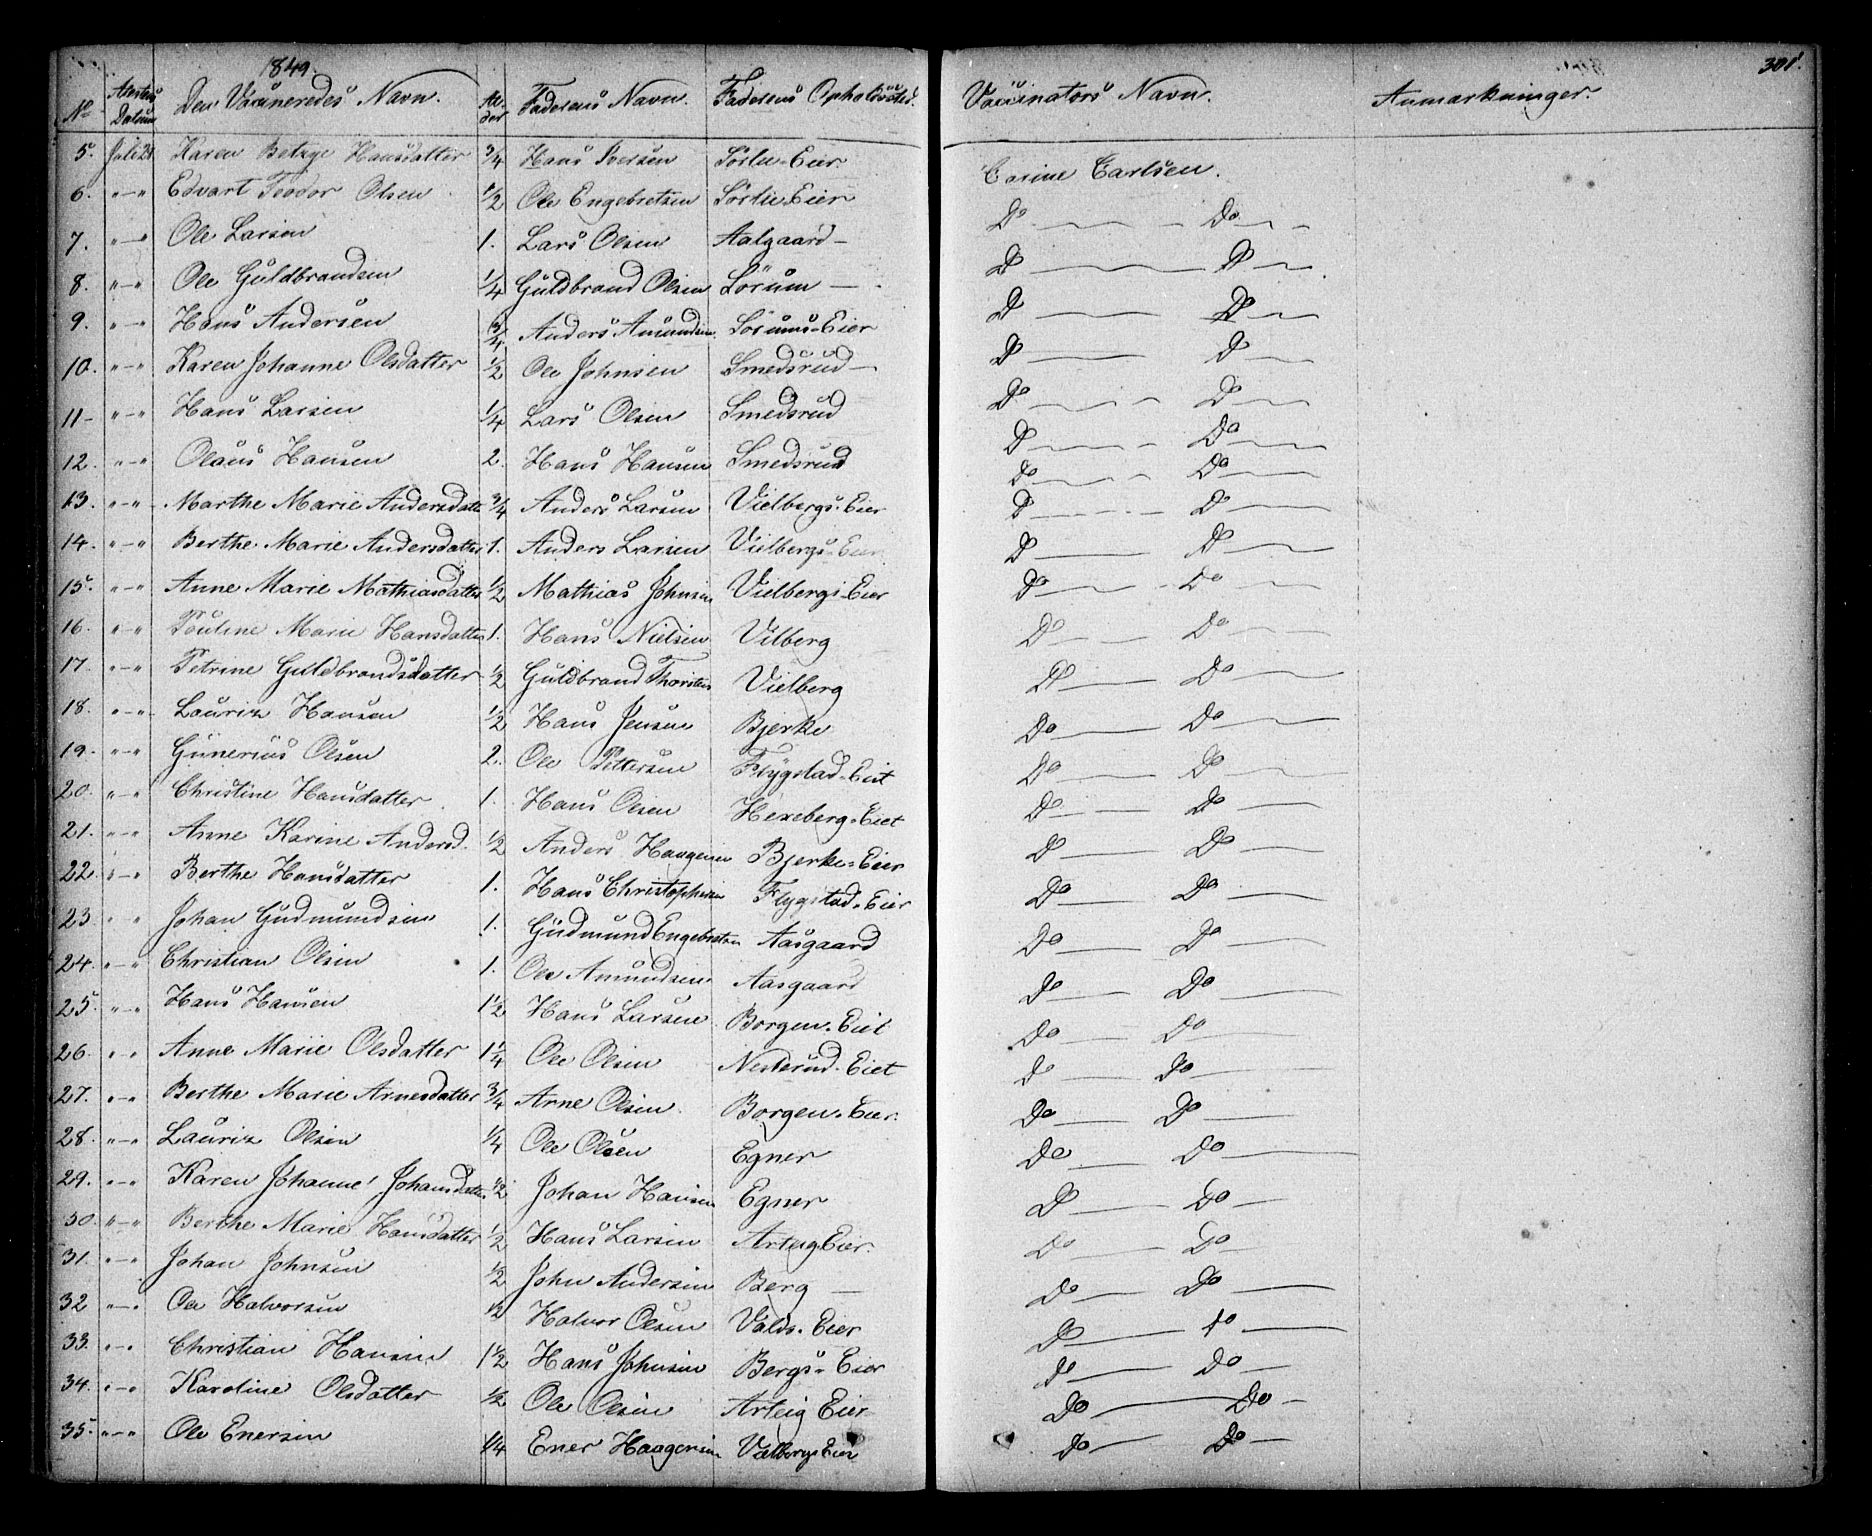 1849. 301.
No Attestens Datum Den Vacineredes Navn. Al-der Faderens Navn. Faderens Opholdssted. Vaccinators Navn. Anmærkninger.
5. Juli 21 Karen Betzye Hansdatter 3/4 Hans Iversen Sörlie-Eier Carine Carlsen.
6. "-" Edvart Teodor Olsen 1/2 Ole Engebretsen Sörlie-Eier Do Do
7. "-" Ole Larsen 1. Lars Olsen Aalgaard- Do Do
8. "-" Ole Guldbrandsen 1/4 Guldbrand Olsen Sörum- Do Do
9. "-" Hans Andersen 3/4 Anders Amundsen Sörums-Eier Do Do
10. "-" Karen Johanne Olsdatter 1/2 Ole Johnsen Smedsrud- Do Do
11- "-" Hans Larsen 1/4 Lars Olsen Smedsrud Do Do
12. "-" Olaus Hansen 2. Hans Hansen Smedsrud Do Do
13. "-" Marthe Marie Andersdatter 3/4 Anders Larsen Vielbergs-Eier Do Do
14. "-" Berthe Marie Andersdatter 1. Anders Larsen Vielbergs-Eier Do Do
15. "-" Anne Marie Mathiasdatter 1/2 Mathias Johnsen Vielbergs-Eier Do Do
16. "-" Pouline Marie Hansdatter 1. Hans Nielsen Vilberg Do Do
17. "-" Petrine Guldbrandsdatter 1/2 Guldbrand Thorsten Vielberg Do Do
18. "-" Lauriz Hansen 1/2 Hans Jensen Bjerke Do Do
19. "-" Gunerius Olsen 2. Ole Pettersen Flygstad-Eiet Do Do
20. "-" Christine Hansdatter 1. Hans Olsen Hexeberg-Eiet Do Do
21. "-" Anne Karine Andersd. 1/2 Anders Haagensen Bjerke-Eier Do Do
22 "-" Berthe Hansdatter 1. Hans Christophersen Flygstad-Eier Do Do
23. " " Johan Gudmundsen 1. Gudmund Engebretsen Aasgaard Do Do
24. "-" Christian Olsen 1. Ole Amundsen Aasgaard Do Do
25. "-" Hans Hansen 1 1/2 Hans Larsen Borgen-Eiet Do Do
26. "-" Anne Marie Olsdatter 1 1/4 Ole Olsen Nesterud-Eiet Do Do
27. "-" Berthe Marie Arnesdatter 3/4 Arne Olsen Borgen-Eier. Do Do
28. "-" Lauriz Olsen 1/4 Ole Olsen Egner Do Do
29. "-" Karen Johanne Johansdatter 1/2 Johan Hansen Egner Do Do
30. "-" Berthe Marie Hansdatter 1/2 Hans Larsen Arteig Eier. Do Do
31. "-" Johan Johnsen 1/2 John Andersen Berg - Do Do
32 "-" Ole Halvorsen 1/2 Halvor Olsen Valds-Eier Do Do
33. "-" Christian Hansen 1 1/2 Hans Johnsen Bergs-Eier Do Do
34. "-" Karoline Olsdatter 1/2 Ole Olsen Arteig Eier Do Do
35. "-" Ole Enersen 1/4 Ener Haagensen Vælbergs Eier Do Do